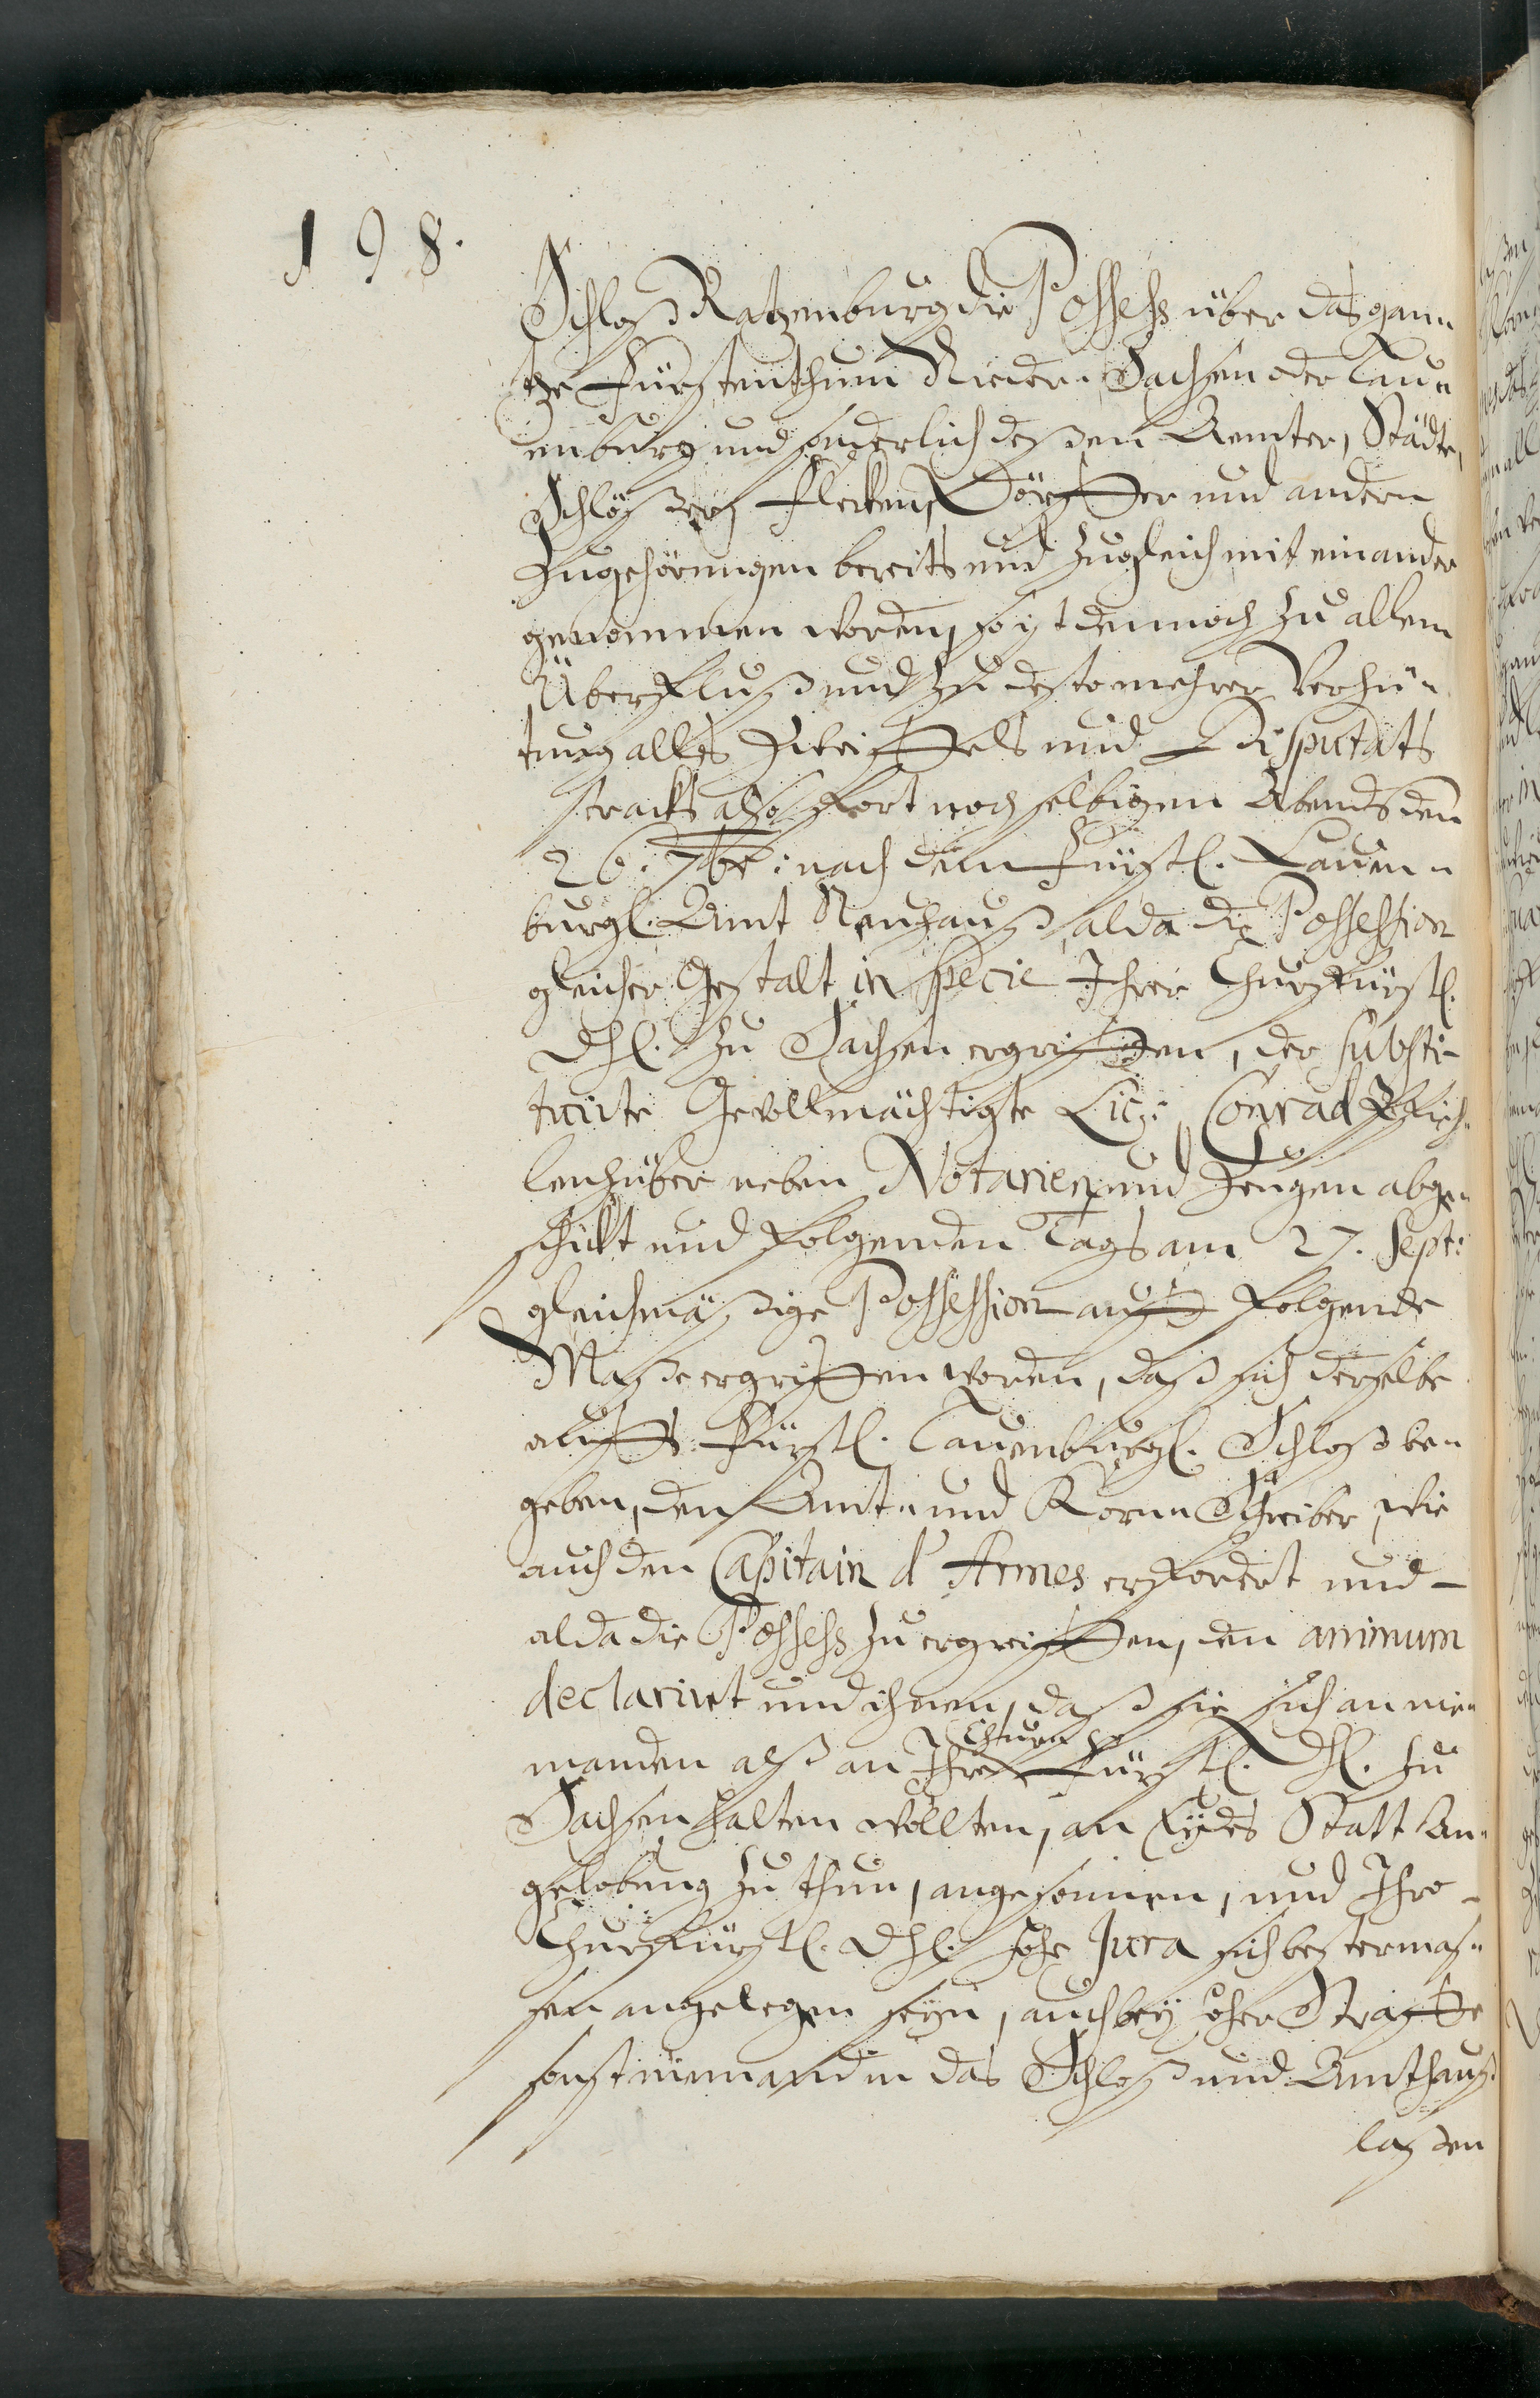 198.
Schloß Ratzenburg die Possess über das gan„
tze Fürstenthum Nieder Sachsen oder Lau„
enburg und sonderlich deßen Aemter, Städte,
Schlößer, Flecken, Dörffer und andern
Zugehörungen bereits und zugleich mit einander
genommen worden, so ist dennoch zu allem
Überfluß und zu desto mehrer Verhü„
tung alles Zweiffels und Disputats
stracks also fort noch selbigen Abends den
26. 7br: nach dem Fürstl. Lauen„
burgl. Amt Neuhauß, alda die Possession
gleicher Gestalt in specie Ihrer Churfürstl.
Dhl. zu Sachsen ergriffen, der substi-
tuirte Gevollmächtigte Lic: Conrad
lenhüber neben Notarien und Zeugen abge„
schickt und folgenden Tags am 27. Sept:
gleichmäßige Possession auff folgende
Maße ergriffen worden, daß sich derselbe
auffs Fürstl. Lauenburgl. Schloß be„
geben, den Amt„ und Korn„Schreiber, wie
auch den Capitain d'Armes erfordert und
alda die Possess zu ergreiffen, den animum
declarirt und ihnen, daß sie sich an nie„
manden alß an Ihre Chur„ Fürstl. Dhl. zu
Sachsen halten wollten, an Eydes Statt An„
gelobung zu thun, angesonnen, und Ihro
Churfürstl. Dhl. hohe Jura sich bestermaß„
sen angelegen seyn, auch bey hoher Straffe
sonst niemand in das Schloß und Amthauß
laßen